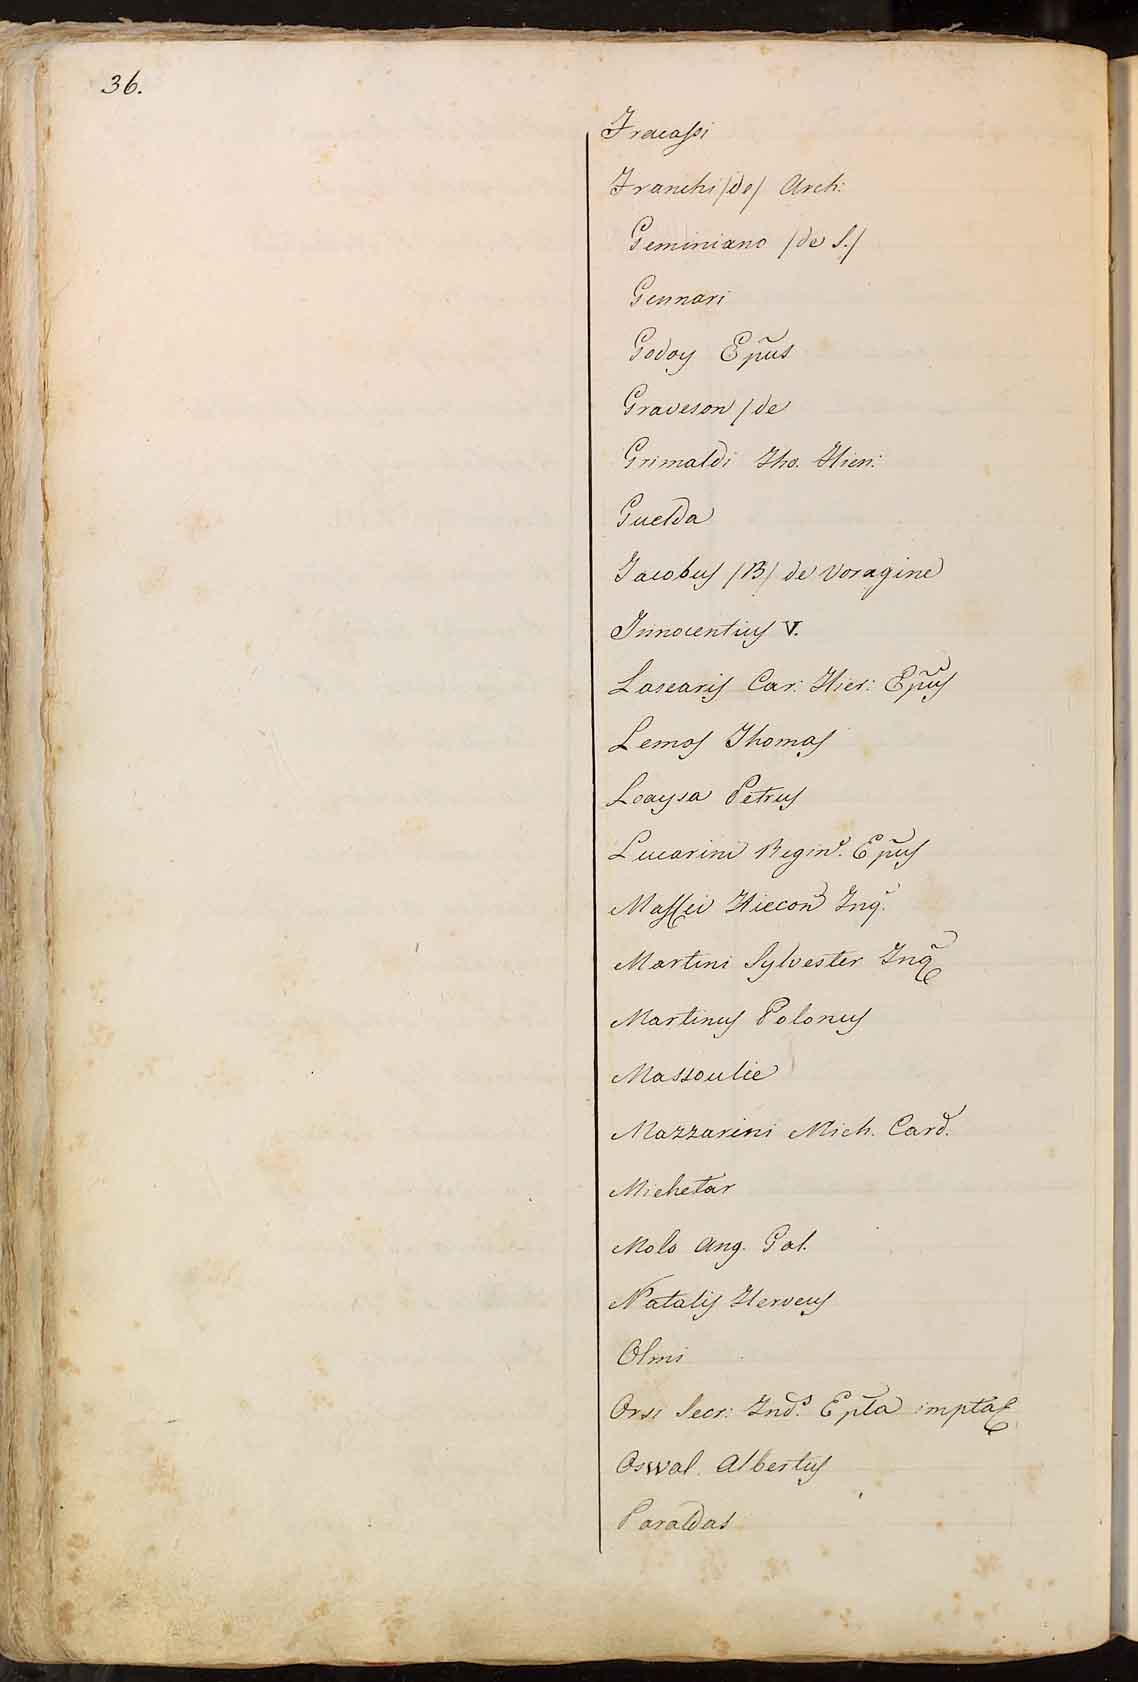 36.
Fracassi
Franchi /de/ Arch:
Geminiano /de S./
Gennari
Godoy Epũs
Graveson /de
Grimaldi Tho. Hier:
Guelda
Iacobus /B/ de Voragine
Innocentius V.
Lascaris Car: Hier: Epũs
Lemos Thomas
Loaysa Petrus
Lucarini Regin.d Epũs
Maffei Inq.r
Martini Sylvester Inq̃
Martinus Polonus
Massoulie
Mazzarini Mich. Card.
Michetar
Molo Ang. Gal.
Natalis Herveus
Olmi
Orsi Secr: Ind.s Epla
Oswal. Albertus
Paraldas